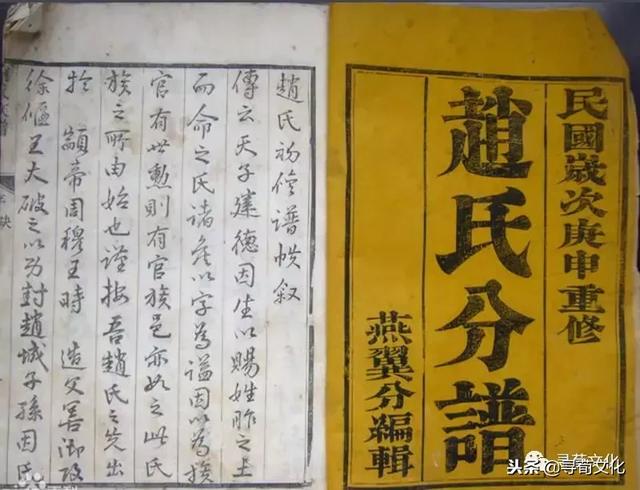 民國歲次庚申重修
趙氏分譜
燕翼分編輯
趙氏初修譜帙叙
傳云天子建德因生以賜姓胙之土
而命之氏諸矦以字為謚因以為族
官有世勲則有官族邑亦如之此氏
族之所由始也謹按吾趙氏之先出
於顓帝周穆王時造父善御攻
徐偃王大破之以功封趙城子孫因氏
寻荀文化
头条@寻荀文化